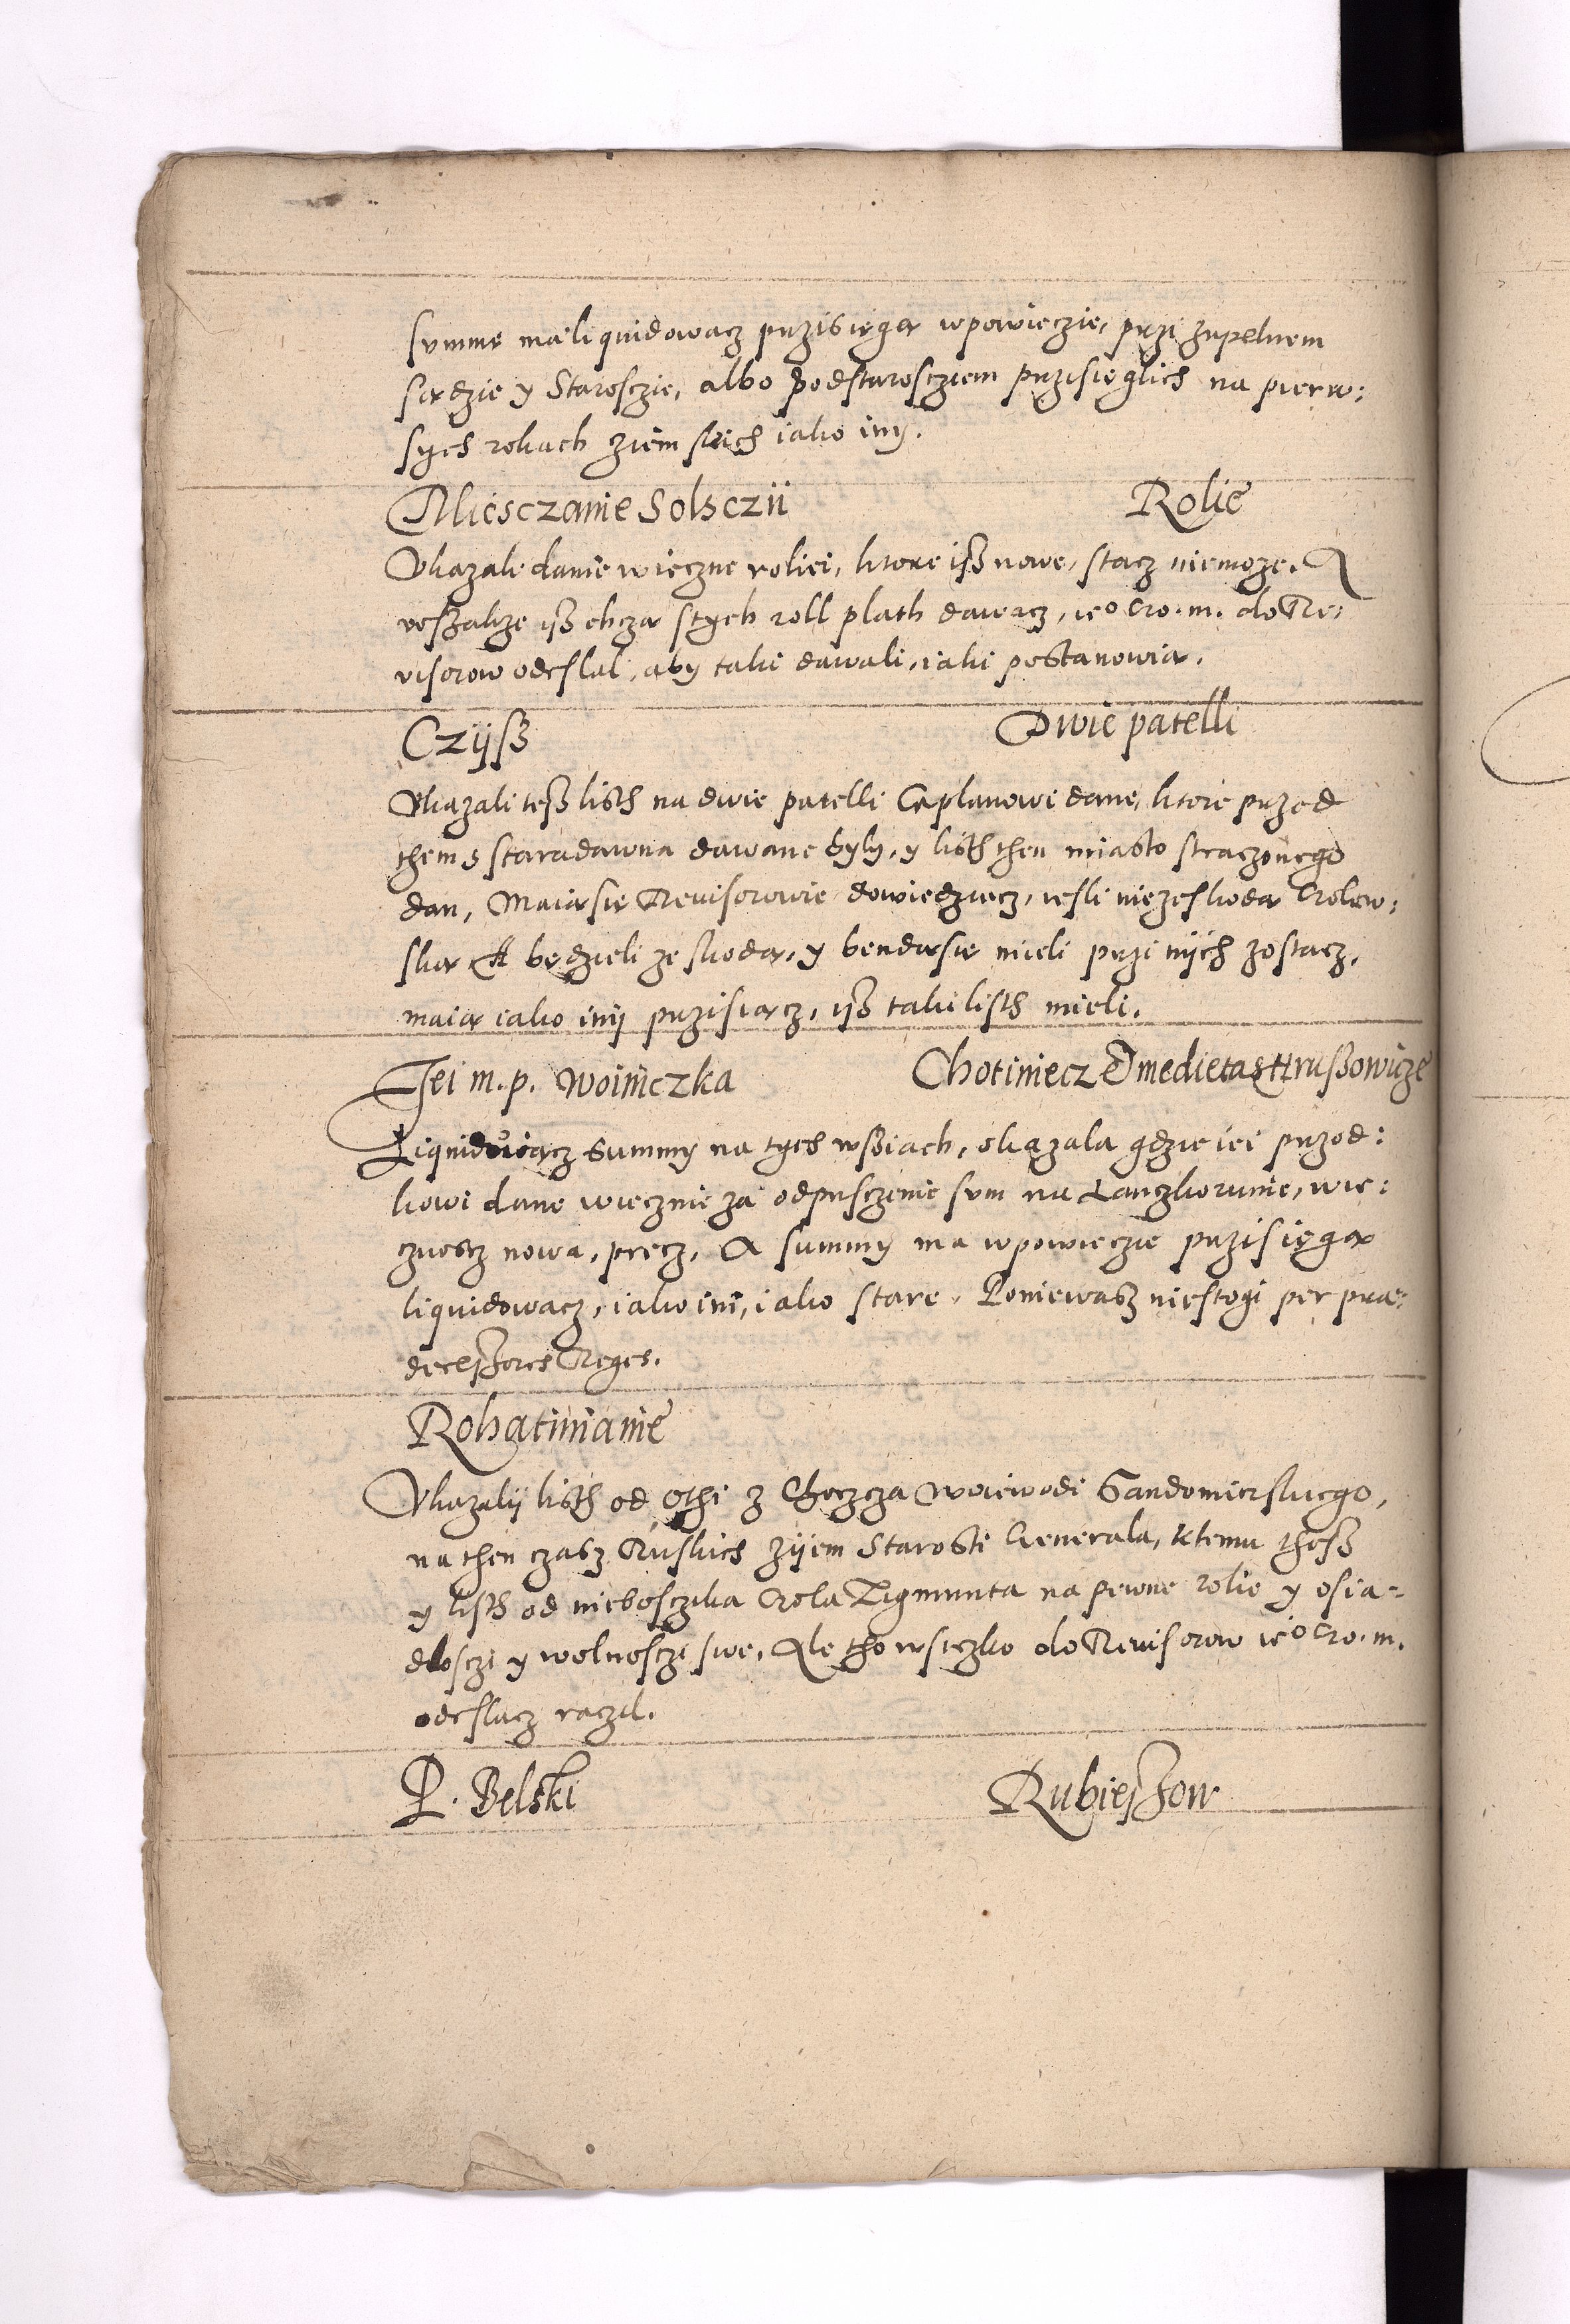 summę ma liquidowacz przisięgą wpowieczie, przi zupełnem
sądzie y Starosczie, albo Podstaroscziem przisięglich na pierw:
sych rokach ziemskich iako iny.
Miesczanie Solsczii Rolie
Vkazali danie wieczne roliei, ktore isz nowe, stacz niemoże. A
wszakże isz chczą stych roll plath dawacz, ieo Cro. m. do Re:
uisorow odesłal, aby taki dawali, iaki postanowią.
Czijsz Dwie patelli
Vkazali tesz listh na dwie patelli Caplanowi dane, ktorie przed
them s staradawna dawane byly, y listh then miasto straczonego
dan, Maią się Reuisorowie dowiedziecz, iesli nie ze skodą Crolew:
ską A będzieli ze skodą, y bendą się mieli przi nijch zostacz,
maią iako inij przisiącz, isz taki listh mieli.
Jei m. p. Woiniczka Chotiniecz Et medietas Hruszowicze
Liquiduiącz summy na tych wsiach, okazala gdzie iei przod:
kowi dane wiecznie za odpusczenie sum na Lanczkorunie, wie:
cznoscz nowa, precz, A summy ma wpowieczie przisięgą
liquidowacz, iako ini, iako stare. Poniewasz niestogi per prae:
decessores Reges.
Rohatinianie
Vkazalij listh od Othi z Choczcza Woiewodi Sandomierskiego,
na then czasz Ruskich zijem Starosti Generala, ktemu thesz
y listh od niebosczika Crola Zigmunta na pewne rolie y osia-
dlosczi y wolnosczi swe, Ale tho wsiczko do Reuisorow ieo Cro. m.
odeslacz raczil.
P. Belski Rubieszow